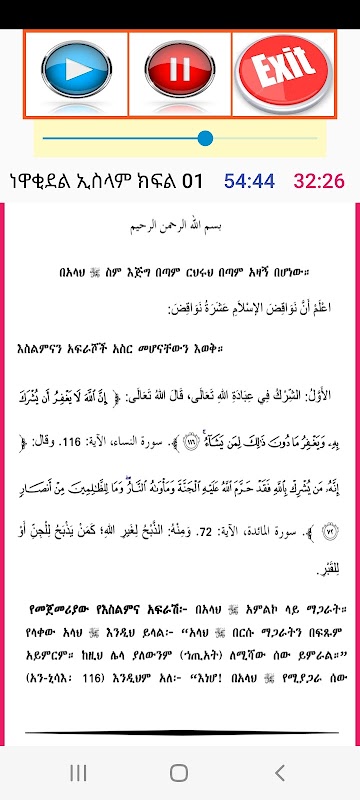 Exit
ነዋቂደል ኢስላም ክፍል 01 54:44 32:26
بسم الله الرحمن الرحيم
በአላህ ﷻ ስም እጅግ በጣም ርህሩህ በጣም አዛኝ በሆነው።
اعْلَمْ أَنَّ نَوَاقِضَ الإِسْلَامِ عَشَرَةُ نَوَاقِضَ:
እስልምናን አፍራሾች አስር መሆናቸውን እወቅ።
الأَوَّلُ: الشِّرْكُ فِي عِبَادَةِ اللهِ تَعَالَى، قَالَ اللهُ تَعَالَى: ﴿ إِنَّ ٱللَّهَ لَا يَغْفِرُ أَن يُشْرَكَ
بِهِۦ وَيَغْفِرُ مَا دُونَ ذَٰلِكَ لِمَن يَشَآءُ ۚ ١١٦ ﴾. سورة النساء، الآية: 116. وقال: ﴿
إِنَّهُۥ مَن يُشْرِكْ بِٱللَّهِ فَقَدْ حَرَّمَ ٱللَّهُ عَلَيْهِ ٱلْجَنَّةَ وَمَأْوَىٰهُ ٱلنَّارُ ۖ وَمَا لِلظَّٰلِمِينَ مِنْ أَنصَارٍ
٧٢ ﴾. سورة المائدة، الآية: 72. وَمِنْهُ: الذَّبْحُ لِغَيرِ اللهِ؛ كَمَنْ يَذْبَحُ لِلْجِنِّ أَوْ
لِلقَبْرِ.
የመጀመሪያው የእስልምና አፍራሽ፡- በአላህ ﷻ አምልኮ ላይ ማጋራት።
የላቀው አላህ ﷻ እንዲህ ይላል፡- “አላህ ﷻ በርሱ ማጋራትን በፍጹም
አይምርም። ከዚህ ሌላ ያለውንም (ኀጢአት) ለሚሻው ሰው ይምራል።”
(አን-ኒሳእ፡ 116) እንዲህም አለ፡- “እነሆ! በአላህ ﷻ የሚያጋራ ሰው